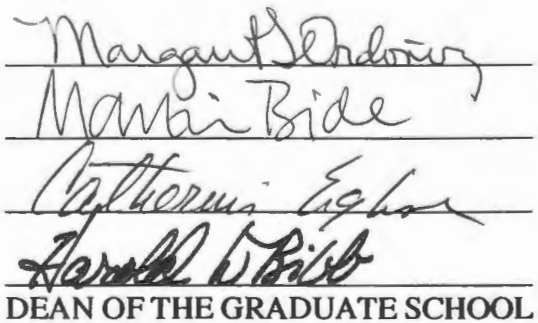 Margaret T Ordoñez
Martin Bide
Catherine
Harold D Bibb
DEAN OF THE GRADUATE SCHOOL